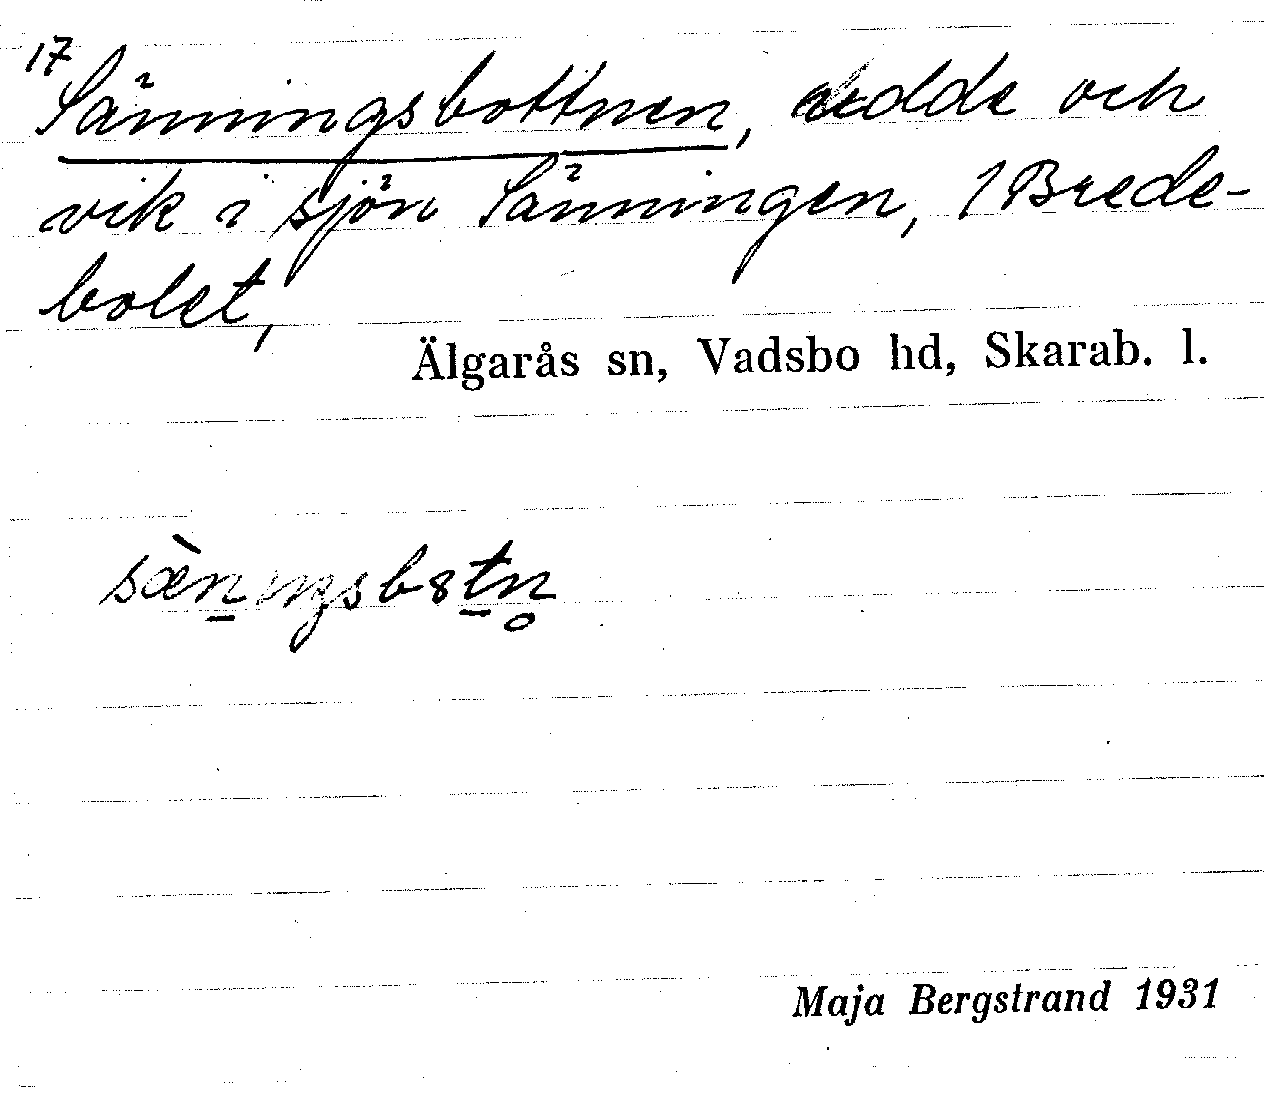 17
Sänningsbottnen, udde och
vik i sjön Sänningen, 1 Brede-
bolet,
Älgarås sn, Vadsbo hd, Skarab. l.
sæ̀n̠iŋsb8t̠n̥
Maja Bergstrand 1931